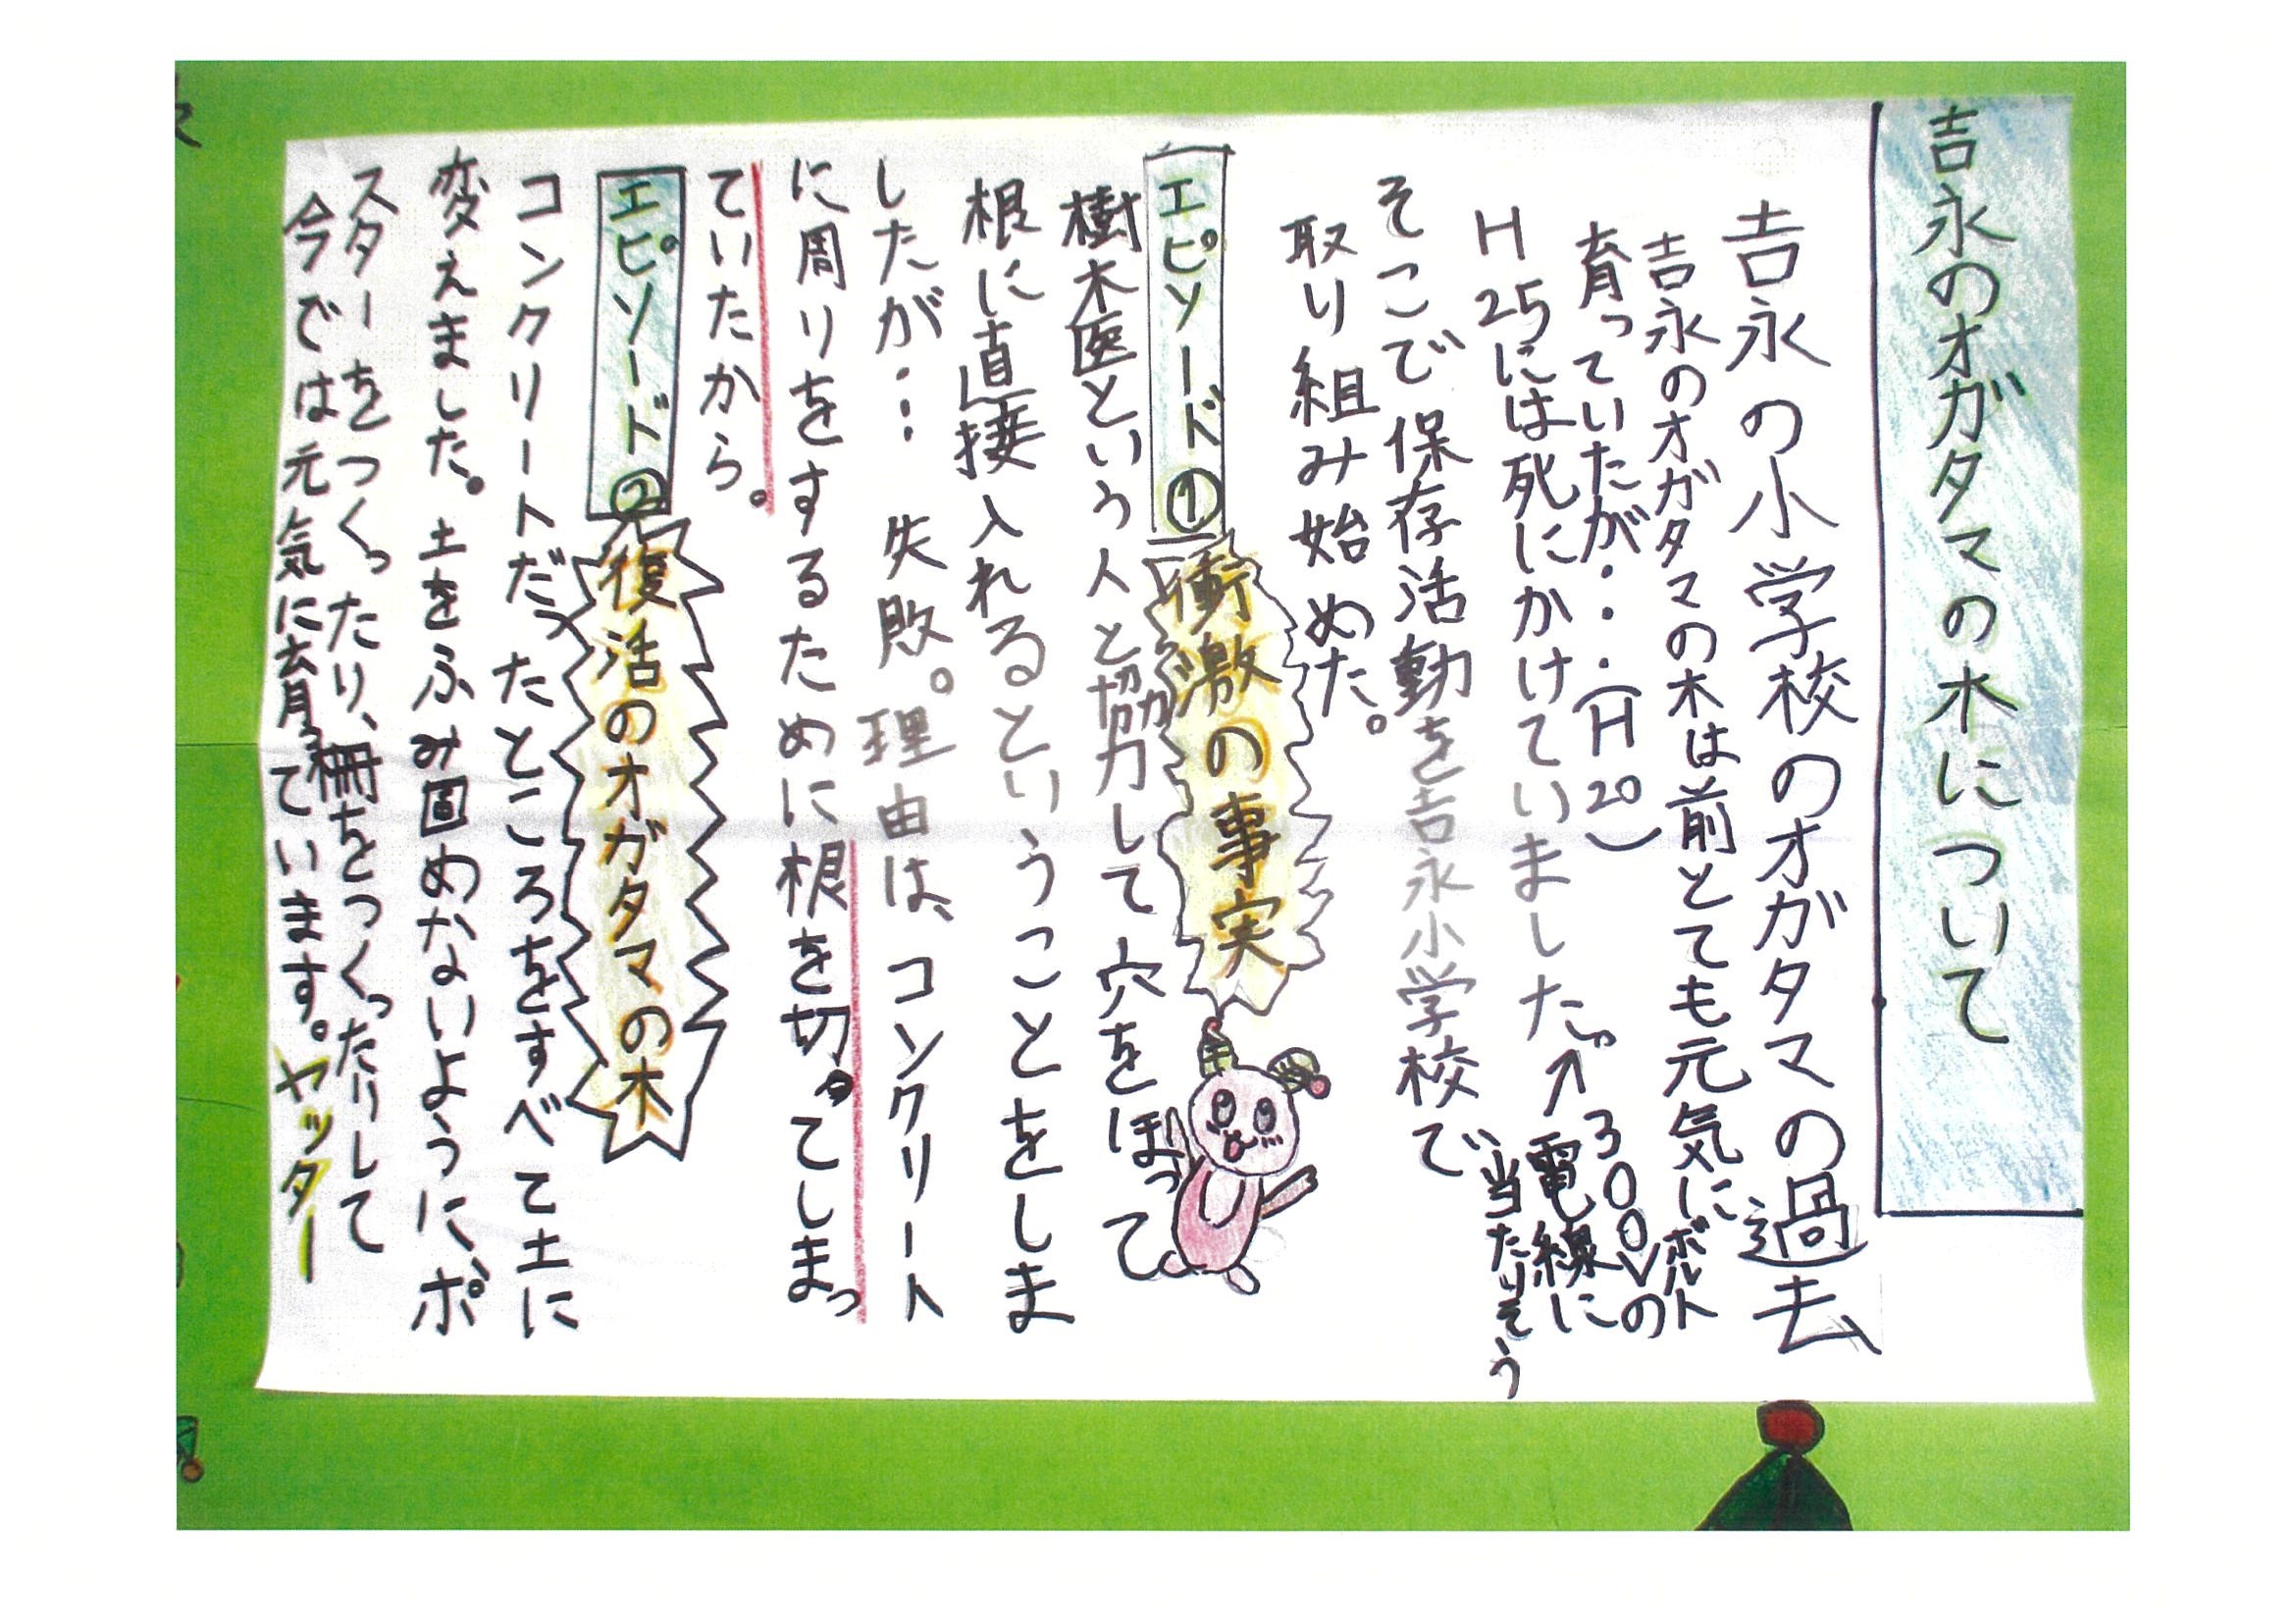 吉永のオガタマの木について
吉永の小学校のオガタマの過去
吉永のオガタマの木は前とても元気に
育っていたが・・・(H20)
H25には死にかけていました。
↑3000Vボルトの
電線に
当たりそう
そこで保存活動を吉永小学校で
取り組み始めた。
エピソード①
衝激の事実
樹木医という人と協力して穴をほって
根に直接入れるということをしま
したが…失敗。理由は、コンクリート
に周りをするために根を切ってしまっ
ていたから。
エピソード②
復活のオガタマの木
コンクリートだったところをすべて土に
変えました。土をふみ固めないように、ポ
スターをつくったり、柵をつくったりして
今では元気に育っています。ヤッター